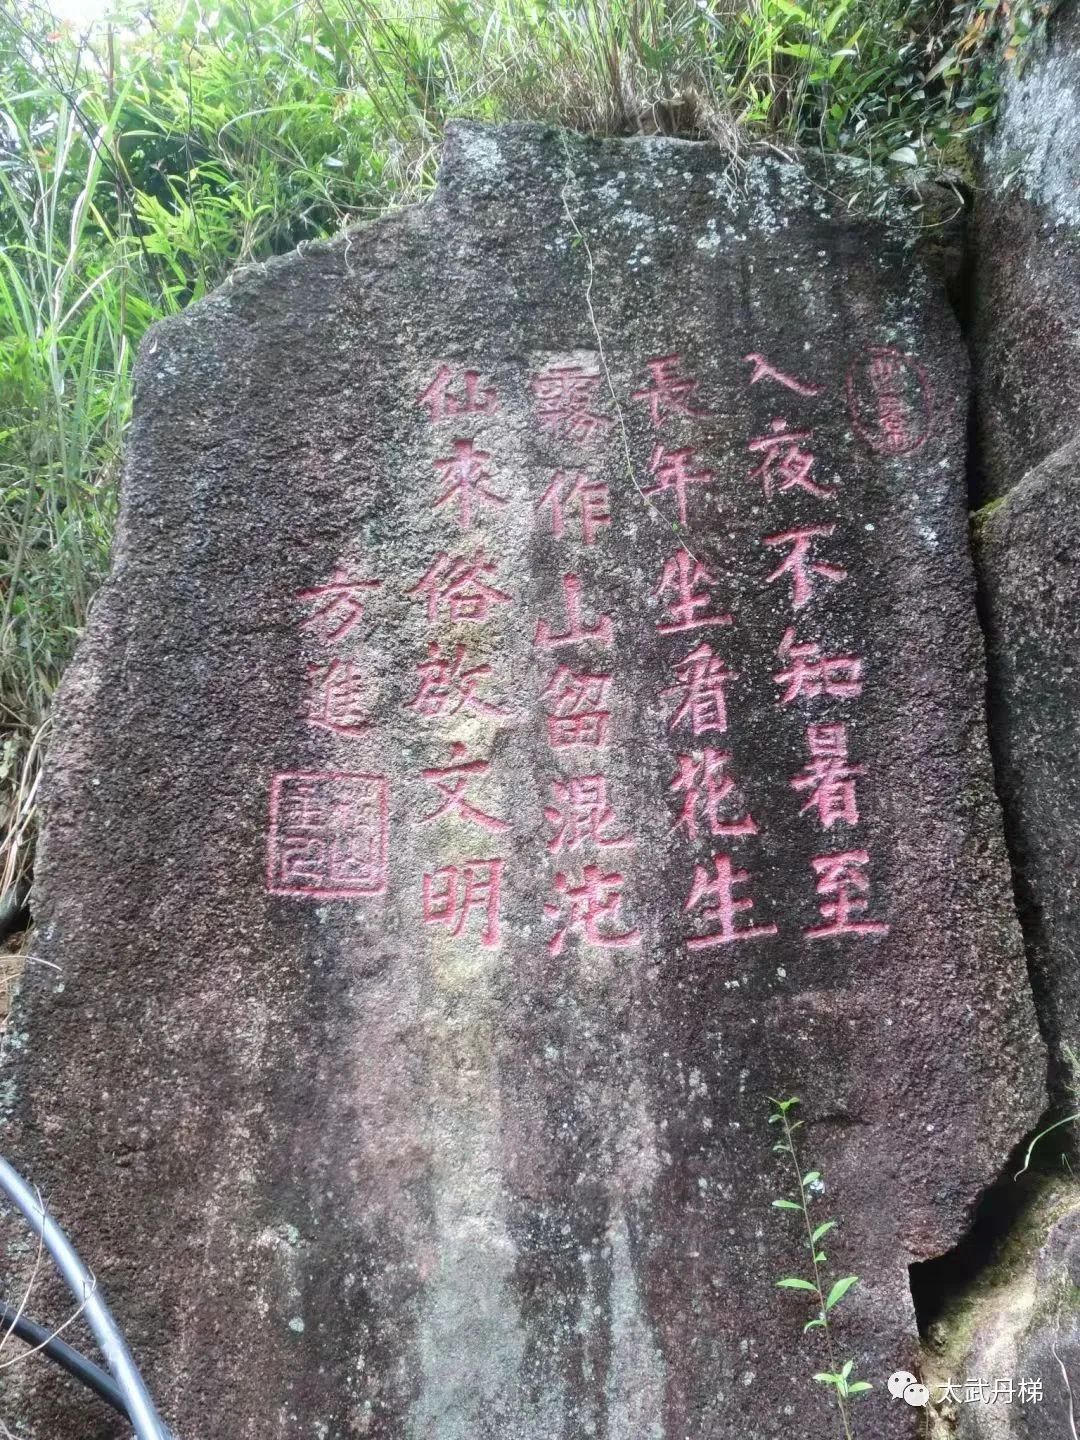 入夜不知暑至
長年坐看花生
霧作山留混沌
仙來俗啟文明
方進
太武丹梯